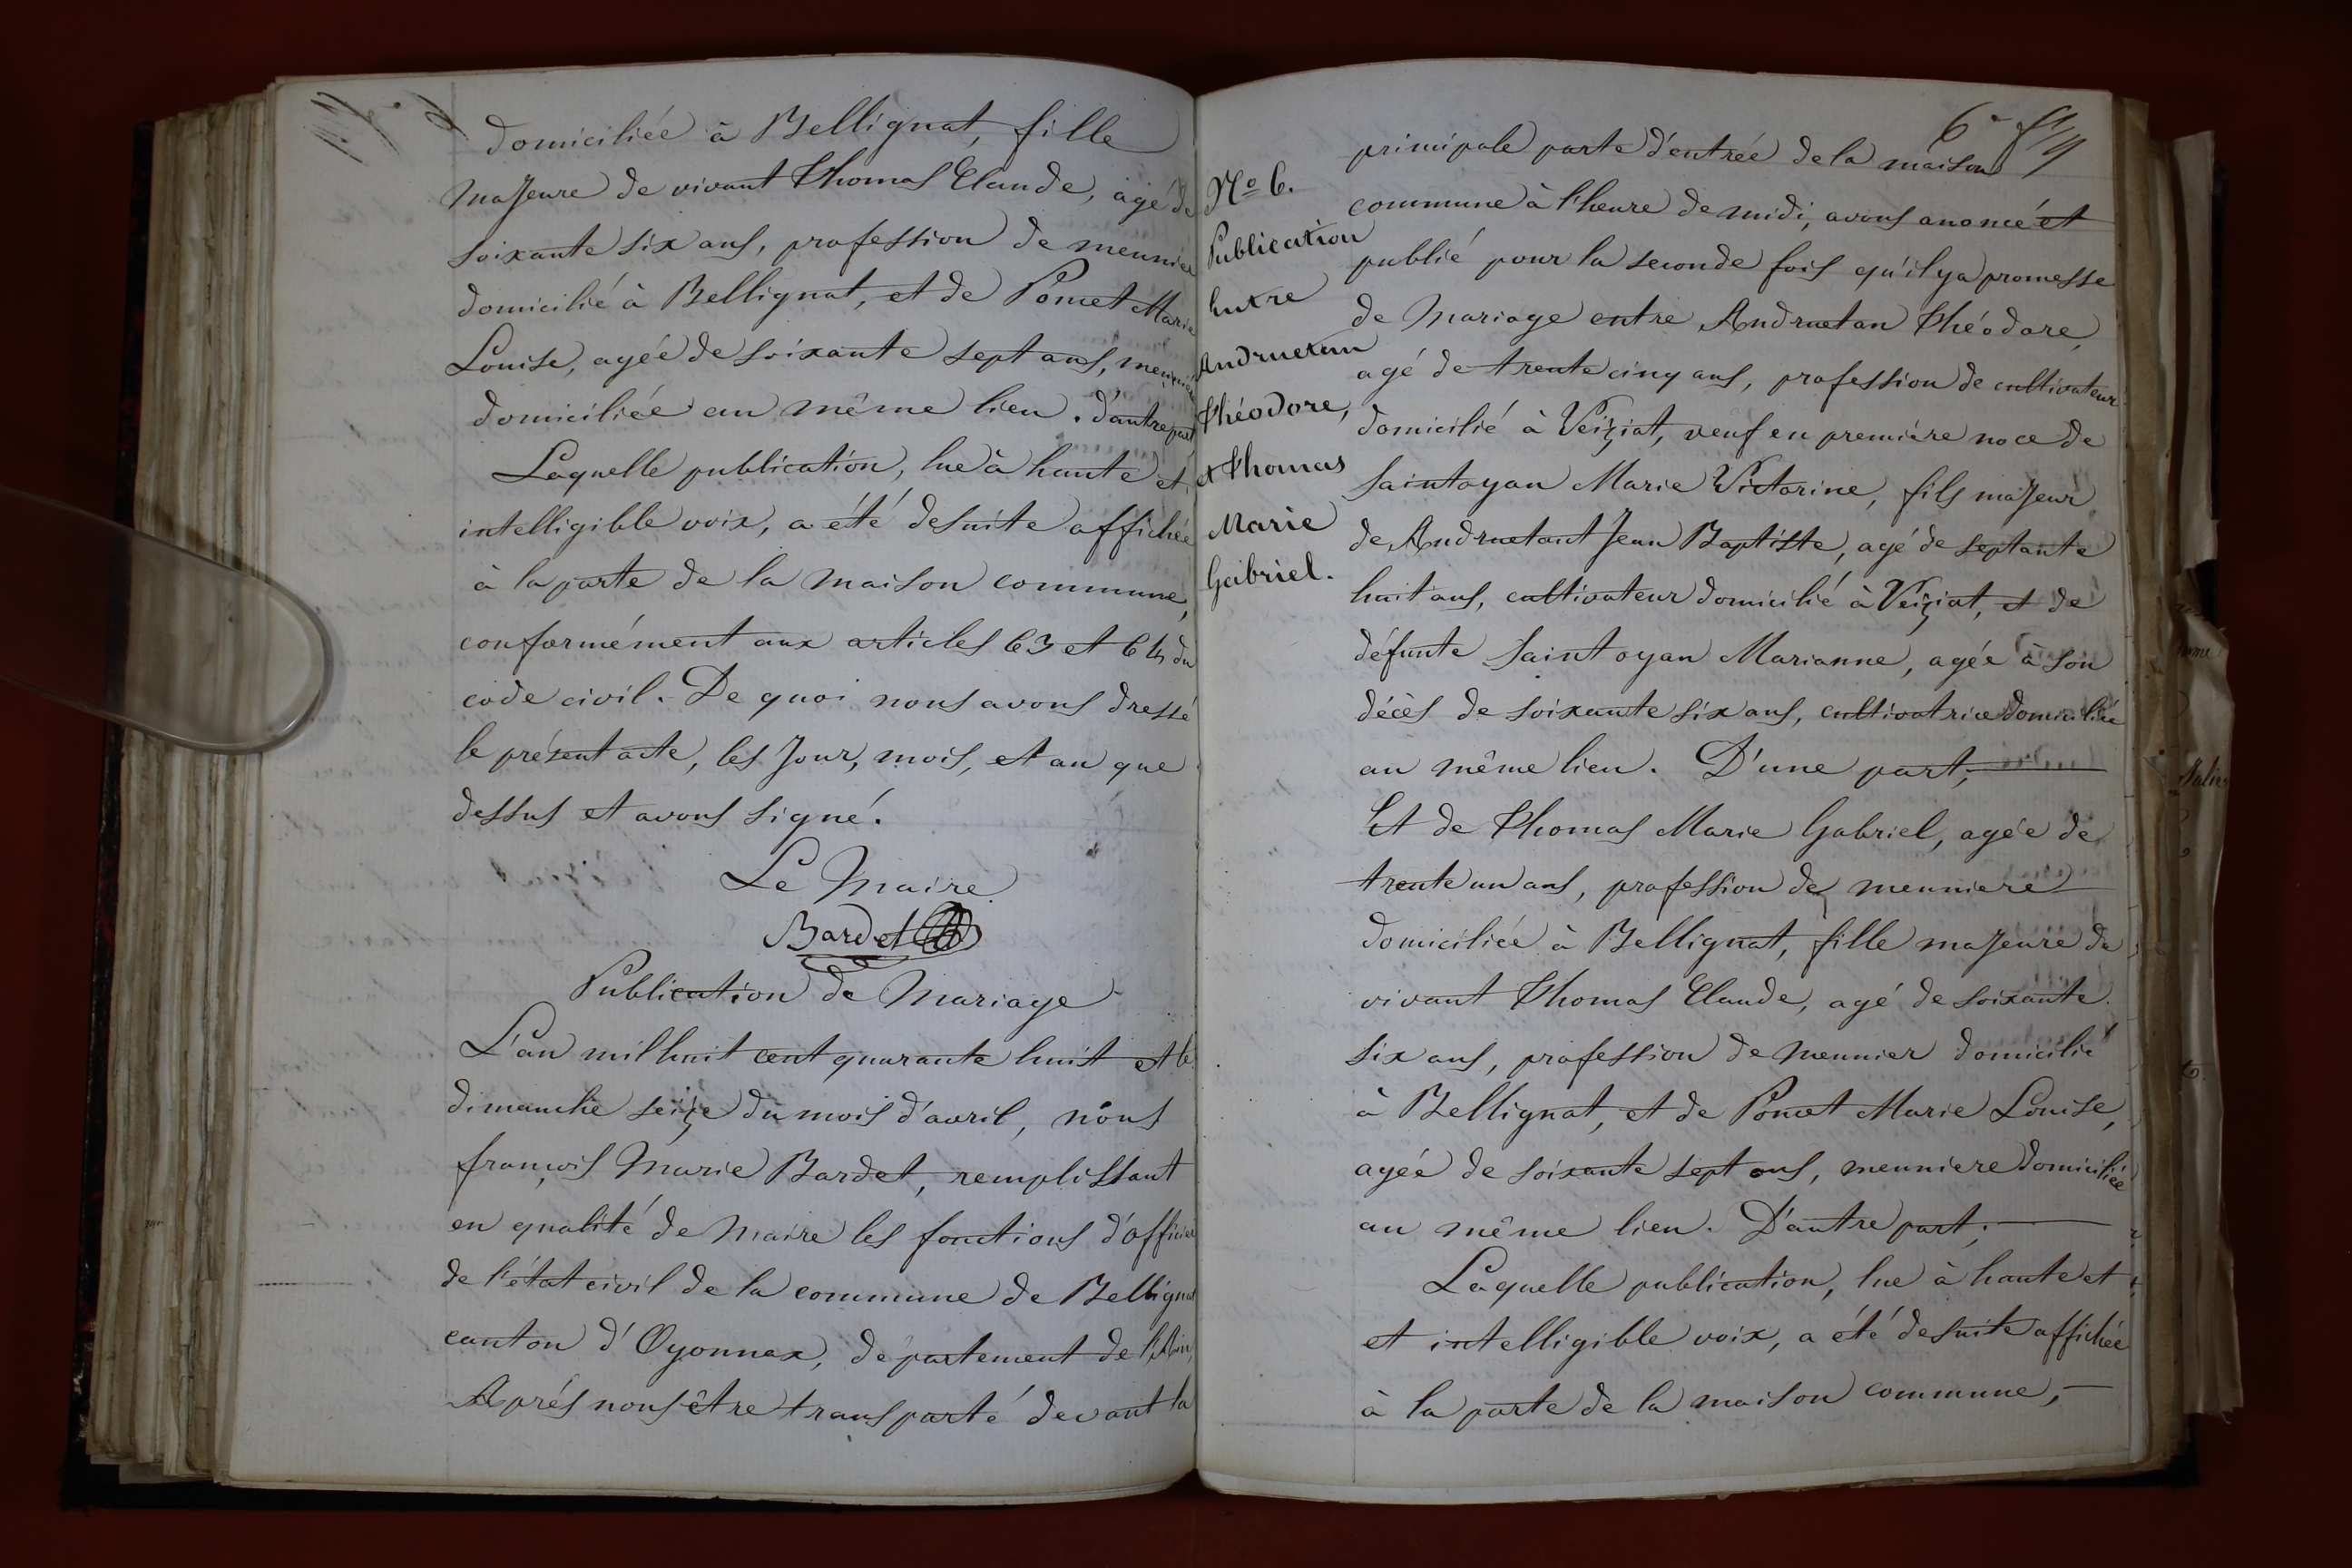 domiciliée à Bellignat, fille
majeure de vivant Thomas Claude, agé de
soixante six ans, profession de meunier
domicilié à Bellignat, et de Poncet Marie
Louise, agée de soixante sept ans, meunière
domiciliée au même lieu. d'autre part
Laquelle publication, lue à haute et
intelligible voix, a été de suite affichée
à la porte de la maison commune,
conformément aux articles 63 et 64 du
code civil. De quoi nous avons dressé
le présent acte, les jour, mois, et an que
dessus et avons signé.
Le Maire
Bardet
Publication de Mariage
L'an mil huit cent quarante huit et le
dimanche seize du mois d'avril, nous
françois Marie Bardet, remplissant
en qualité de Maire les fonctions d'officier
de l'état civil de la commune de Bellignat
canton d'Oyonnax, département de l'Ain,
Après nous être transporté devant la
No 6.
Publication
Entre
Andruetan
Théodore,
et Thomas
Marie
Gabriel.
6e f
principale porte d'entrée de la maison
commune à l'heure de midi, avons anoncé et
publié pour la seconde fois qu'il y a promesse
de Mariage entre Andruetan Théodore,
agé de trente cinq ans, profession de cultivateur
domicilié à Veiziat, veuf en première noce de
Saintoyan Marie Victorine, fils majeur
de Andruetant Jean Baptiste, agé de septante
huit ans, cultivateur domicilié à Veiziat, et de
défunte Saint oyan Marianne, agée à son
décès de soixante six ans, cultivatrice domiciliée
au même lieu. D'une part,
Et de Thomas Marie Gabriel, agée de
trente un ans, profession de meuniere
domiciliée à Bellignat, fille majeure de
vivant Thomas Claude, agé de soixante
six ans, profession de meunier domicilié
à Bellignat, et de Poncet Marie Louise,
agée de soixante sept ans, meuniere domiciliée
au même lieu. D'autre part;
Laquelle publication, lue à haute et
et intelligible voix, a été de suite affichée
à la porte de la maison commune,